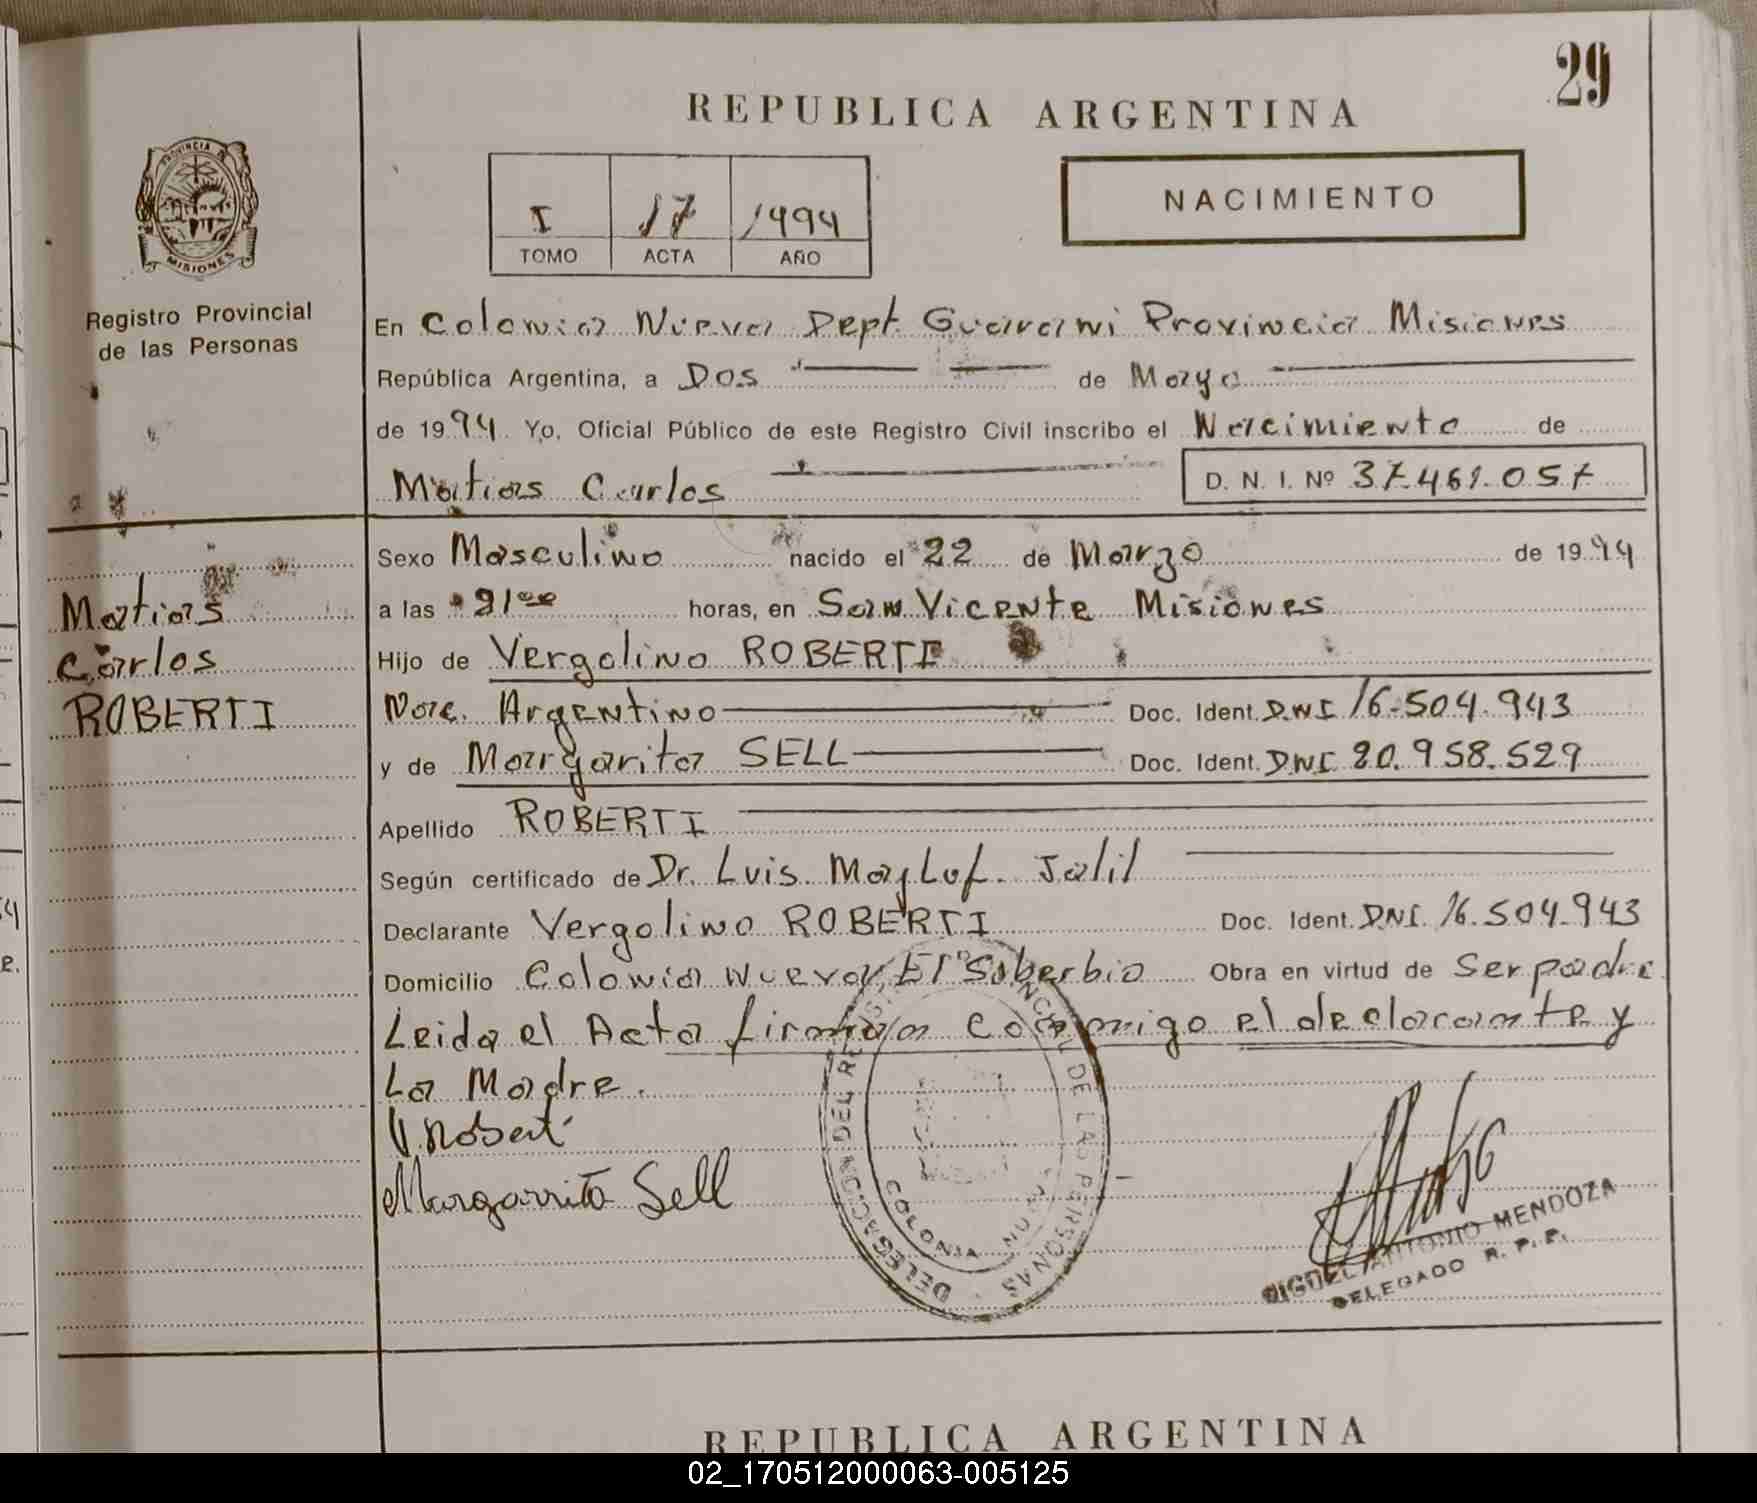 29
REPUBLICA ARGENTINA
PROVINCIA DE
MISIONES
Registro Provincial
de las Personas
I 17 1994
TOMO ACTA AÑO
NACIMIENTO
En Colonia Nueva Dept. Guarani Provincia Misiones
República Argentina, a Dos de Mayo
de 1994. Yo, Oficial Público de este Registro Civil inscribo el Nacimiento de
Matias Carlos D. N. I. Nº 37.461.057
Sexo Masculino nacido el 22 de Marzo de 1994
Matias
Carlos
ROBERTI
a las 21 horas, en San Vicente Misiones
Hijo de Vergolino ROBERTI
Nac. Argentino Doc. Ident. DNI 16.504.943
y de Margarita SELL Doc. Ident. DNI 20.958.529
Apellido ROBERTI
Según certificado de Dr. Luis Mayluf Jalil
Declarante Vergolino ROBERTI Doc. Ident. DNI. 16.504.943
Domicilio Colonia Nueva, El Soberbio Obra en virtud de Ser padre
Leida el Acta firman conmigo el declarante y
La Madre.
V. Roberti
Margarrita Sell
DELEGACION DEL REGISTRO PROVINCIAL DE LAS PERSONAS
COLONIA NUEVA
MIGUEL ANTONIO MENDOZA
DELEGADO R. P. P.
REPUBLICA ARGENTINA
02_170512000063-005125